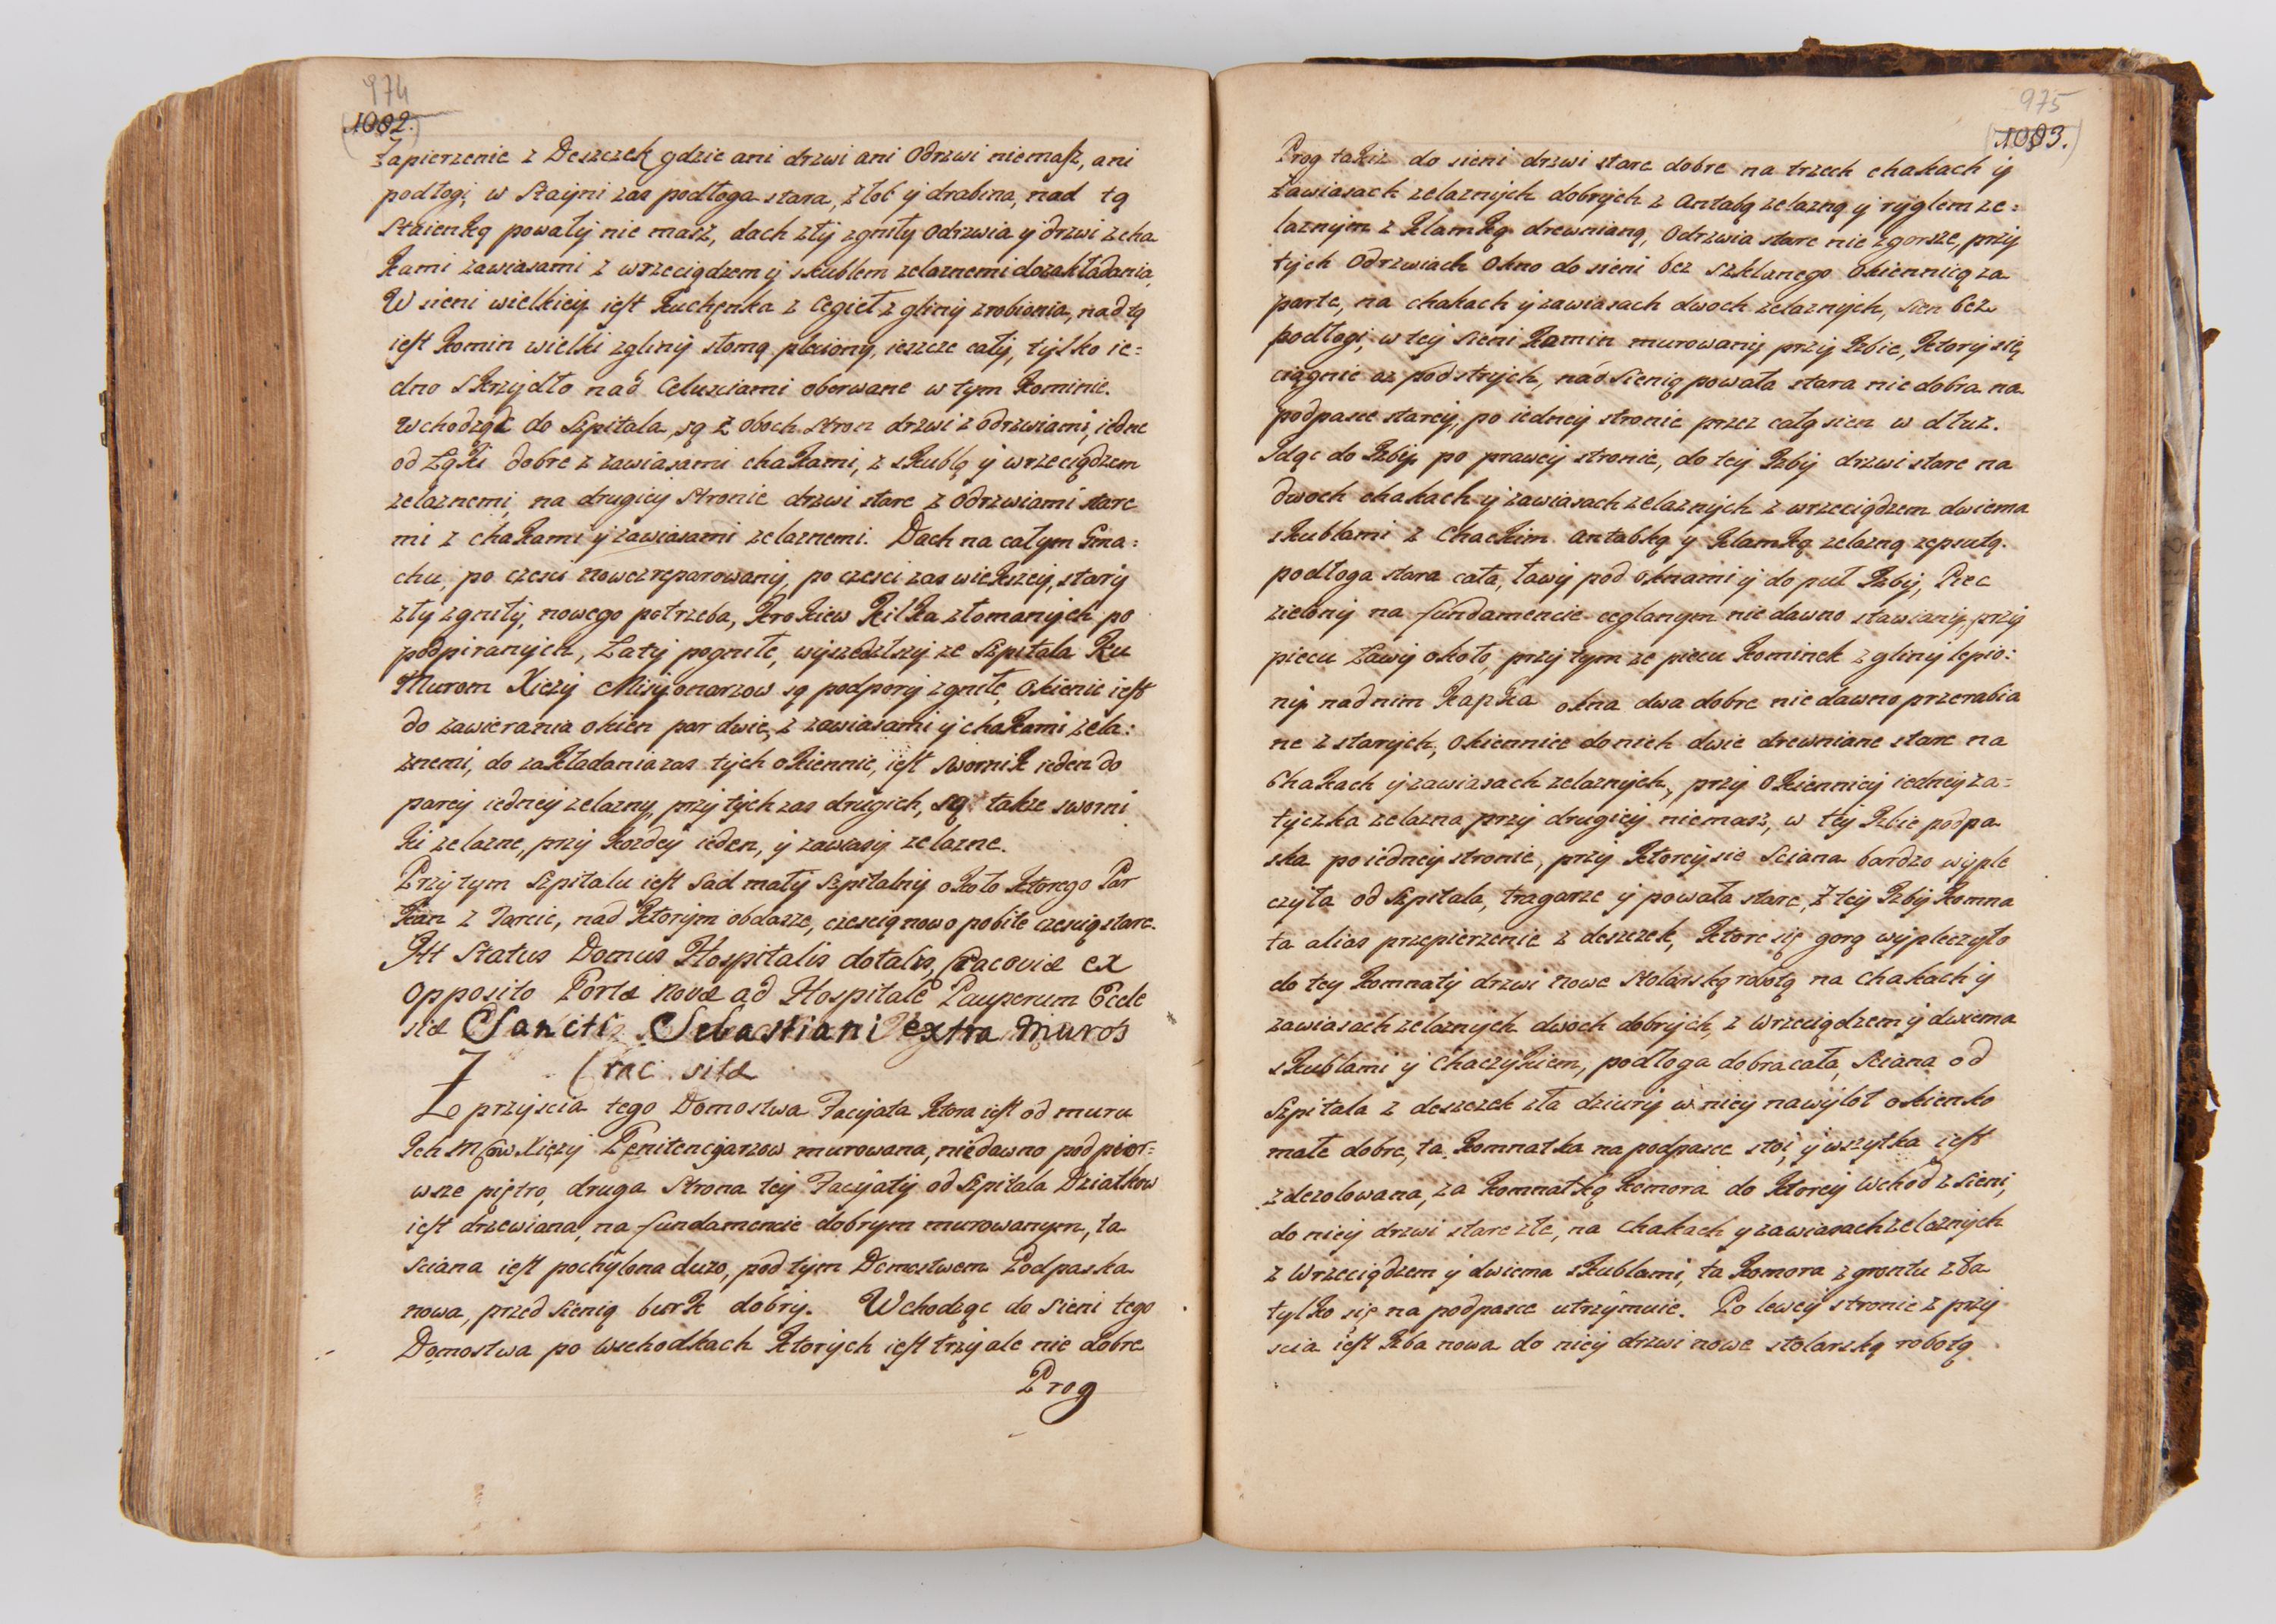 974
1002.
Zapierzenie z Deszczek gdzie ani drzwi ani Odrzwi niemasz, ani
podłogi, w Stayni zas podłoga stara, żłob y drabina, nad tą
Staienką powały nie masz, dach zły zgniły Odrzwia y drzwi z cha
kami zawiasami z wrzeciądzem y skublem zelaznemi do zakładania,
W sieni wielkiey iest Kuchenka z Cegieł z gliny zrobiona, nad tą
iest Komin wielki z gliny słomą pleciony, ieszcze cały, tylko ie=
dno Skrzydło nad Celusciami oberwane w tym Kominie.
Wchodząc do Szpitala, są z oboch stron drzwi z odrzwiami, iedne
od Łąki dobre z zawiasami chakami, z skublą y wrzeciądzem
zelaznemi, na drugiey stronie drzwi stare z Odrzwiami stare
mi z chakami y zawiasami zelaznemi. Dach na całym Gma:
chu, po czesci nowozreparowany, po czesci zas wiekszey, stary
zły zgniły, nowego potrzeba, Krokiew Kilka złomanych po
podpiranych, Łaty pogniłe, wyszedłszy ze Szpitala Ku
Murom Xięży Misyonarzow są podpory zgniłe, Okienic iest
do zawierania okien par dwie, z zawiasami y chakami zela:
znemi, do zakładania zas tych okiennic, iest swornik ieden do
parey iedney zelazny, przy tych zas drugich, są takze sworni
ki zelazne, przy kozdey ieden, y zawiasy zelazne.
Przy tym Szpitalu iest Sad mały Szpitalny około ktorego Par
kan z Tarcic, nad ktorym obdasze, czescią nowo pobite czescią stare.
Itt Status Domus Hospitalis dotalis, Cracoviæ ex
opposito Portæ Novæ ad Hospitale Pauperum Eccle
siæ Sancti Sebastiani extra Muros
Crac. sitæ
Z przyscia tego Domostwa Facyata ktora iest od muru
Ich Mciow Xięzy Pœnitencyarzow murowana, niedawno pod pier=
wsze piętro, druga Strona tey Facyaty od Szpitala Dziatkow
iest drzewiana, na fundamencie dobrym murowanym, ta
Sciana iest pochylona duzo, pod tym Domostwem Podpaska
nowa, przed sienią burk dobry. Wchodząc do Sieni tego
Domostwa po Wschodkach ktorych iest trzy ale nie dobre
Prog
975
1003.
Prog takiz do sieni drzwi stare dobre na trzech chakach y
zawiasach zelaznych dobrych z Antabą zelazną y ryglem ze=
laznym z Klamką drewnianą, Odrzwia stare nie zgorsze, przy
tych Odrzwiach Okno do sieni bez szklanego Okiennicą za
parte, na chakach y zawiasach dwoch zelaznych, Sien bez
podłogi, w tey Sieni Kamin murowany przy Izbie, Ktory się
ciągnie az pod strych, nad Sienią powała stara nie dobra na
podpasce starey, po iedney stronie przez całą sien w dłuz.
Idąc do Izby po prawey stronie, do tey Izby drzwi stare na
dwoch chakach y zawiasach zelaznych z wrzeciądzem dwiema
skublami z Chackim Antabką y Klamką zelazną zepsutą.
podłoga stara cała, ławy pod Oknami y do puł Izby, Piec
zielony na fundamencie ceglanym niedawno stawiany, przy
piecu Ławy około, przy tym ze piecu Kominek z gliny lepio:
ny nad nim Kapka okna dwa dobre nie dawno przerabia
ne z starych, Okiennice do nich dwie drewniane stare na
Chakach y zawiasach zelaznych, przy Okiennicy iedney za=
tyczka zelazna przy drugiey niemasz, w tey Izbie podpa
ska po iedney stronie, przy Ktorey sie Sciana bardzo wyple
czyła od Szpitala, tragarze y powała stare, Z tey Izby Komna
ta alias przepierzenie z deszczek, Ktore się gorą wypleczyło
do tey Komnaty drzwi nowe Stolarską robotą na Chakach y
zawiasach zelaznych dwoch dobrych, z Wrzeciądzem y dwiema
skublami y Chaczykiem, podłoga dobra cała, Sciana od
Szpitala z deszczek zła dziury w niey nawylot okienko
małe dobre, ta Komnatka na podpasce stoi, y wszytka iest
zdezolowana, za Komnatką Komora do Ktorey Wchod z Sieni,
do niey drzwi stare złe, na Chakach y zawiasach zelaznych
z Wrzeciądzem y dwiema skublami, ta Komora z gruntu zła
tylko się na podpasce utrzymuie. Po lewey stronie z przy
scia iest Izba nowa do niey drzwi nowe stolarską robotą